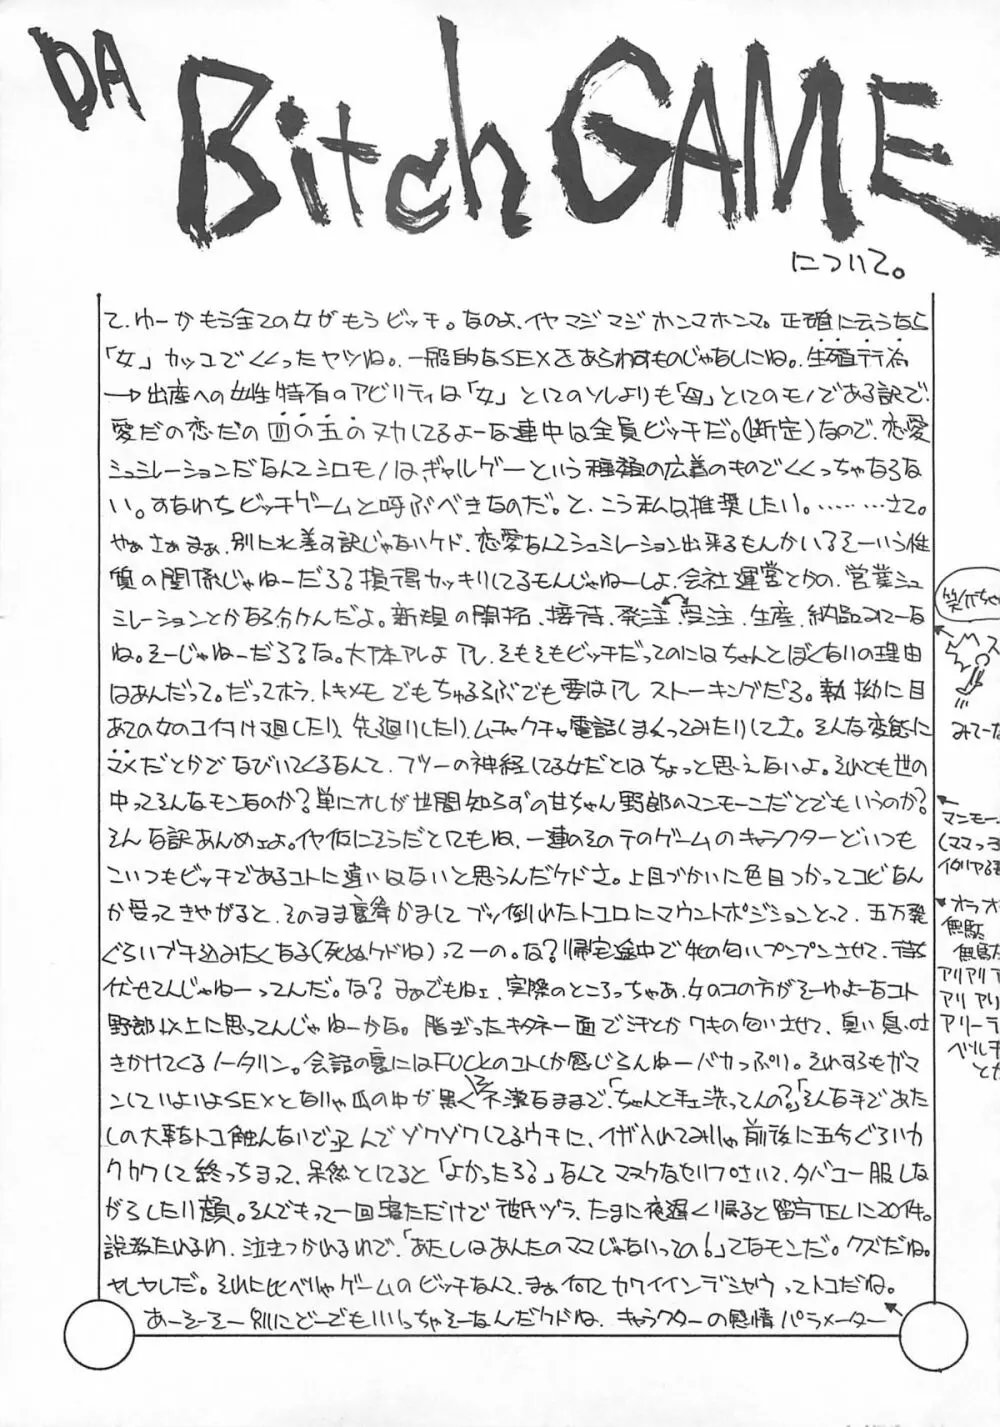 DA
Bitch GAME
について。
て、ゆーかもう全ての女がもうビッチ。なのよ、イヤマジマジホンマホンマ。正確に云うなら
「女」カッコでくくったヤツね。一般的なSEXをあらわすものじゃなしにね。生殖行為
→出産への女性特有のアビリティは「女」としてのソレよりも「母」としてのモノである訳で、
愛だの恋だの四の五のヌカしてるよーな連中は全員ビッチだ。(断定)なので、恋愛
シュミレーションだなんてシロモノはギャルゲーという種類の広義のものでくくっちゃならな
い。すなわちビッチゲームと呼ぶべきなのだ。と、こう私は推奨したい。………さて。
やぁさぁまぁ、別に水差す訳じゃないケド、恋愛なんてシュミレーション出来るもんかい?そーいう性
質の関係じゃねーだろ?損得カッキリしてるモンじゃねーしよ、会社運営とかの、営業シュ
ミレーションとかなら分かんだよ。新規の開拓、接待、発注、受注、生産、納品みてーな
ね。そーじゃねーだろ?な。大体アレよアレ、そもそもビッチだってのにはちゃんとぼくないの理由
はあんだって。だってホラ、トキメモでもちゅるるぶでも要はアレストーキングだろ。執拗に目
あての女のコ付け廻したり、先廻りしたり、ムチャクチャ電話しまくってみたりしてさ。そんな変態に
マメだとかでなびいてくるなんて、フツーの神経してる女だとはちょっと思えないよ。それとも世の
中ってそんなモンなのか?単にオレが世間知らずの甘ちゃん野郎のマンモーニだとでもいうのか?
そんな訳あんめェよ。イヤ仮にそうだとしてもね、一連のそのテのゲームのキャラクターどいつも
こいつもビッチであるコトに違いはないと思うんだケドさ。上目づかいに色目つかってコビなん
か売ってきやがると、そのまま裏拳かましてブッ倒れたトコロにマウントポジションとって、五万発
ぐらいブチ込みたくなる(死ぬケドね)っての。な?帰宅途中で女の匂いプンプンさせて、待ち
伏せてんじゃねーってんだ。な?まぁでもねェ、実際のところっちゃあ、女のコの方がそーゆよーなコト
野郎以上に思ってんじゃねーかな。脂ぎったキタネー面で汗とかワキの匂いさせて、臭い息吐
きかけてくるノータリン。会話の裏にはFUCKのコトしか感じらんねーバカっぷり。それすらもガマ
ンしていよいよSEXとなりゃ爪の中が黒くて不潔なままで、「ちゃんと手ェ洗ってんの?」そんな手であた
しの大事なトコ触んないでって、んでゾクゾクしてるウチに、イザ入れてみりゃ前後に五分ぐらいカ
クカクして終っちまって、呆然としてると「よかったろ?」なんてマヌケなセリフ吐いて、タバコ一服しな
がらしたり顔。そんでもって一回寝ただけで彼氏ヅラ、たまに夜遅く帰ると留守TELに20件。
説教たれるわ、泣きつかれるわで、「あたしはあんたのママじゃないっての!」てなモンだ。クズだね。
ヤレヤレだ。それに比べりゃゲームのビッチなんて、まぁ何てカワイインデシャウってトコだね。
あーそーそー別にどーでもいいっちゃそーなんだケドね、キャラクターの感情パラメーター
笑介ちゃ
みてーな
マンモーニ
(ママっ子
オラオ
無駄
無駄
アリアリア
アリアリ
アリーデ
ベルチ
とか